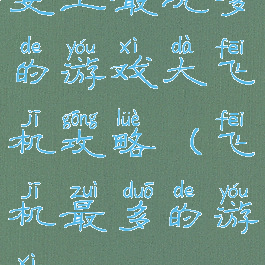 de yóu xì dà fēi
的游戏大飞
jī gōng lüè fēi
机攻略（飞
jī zuì duō de yóu
机最多的游
xì